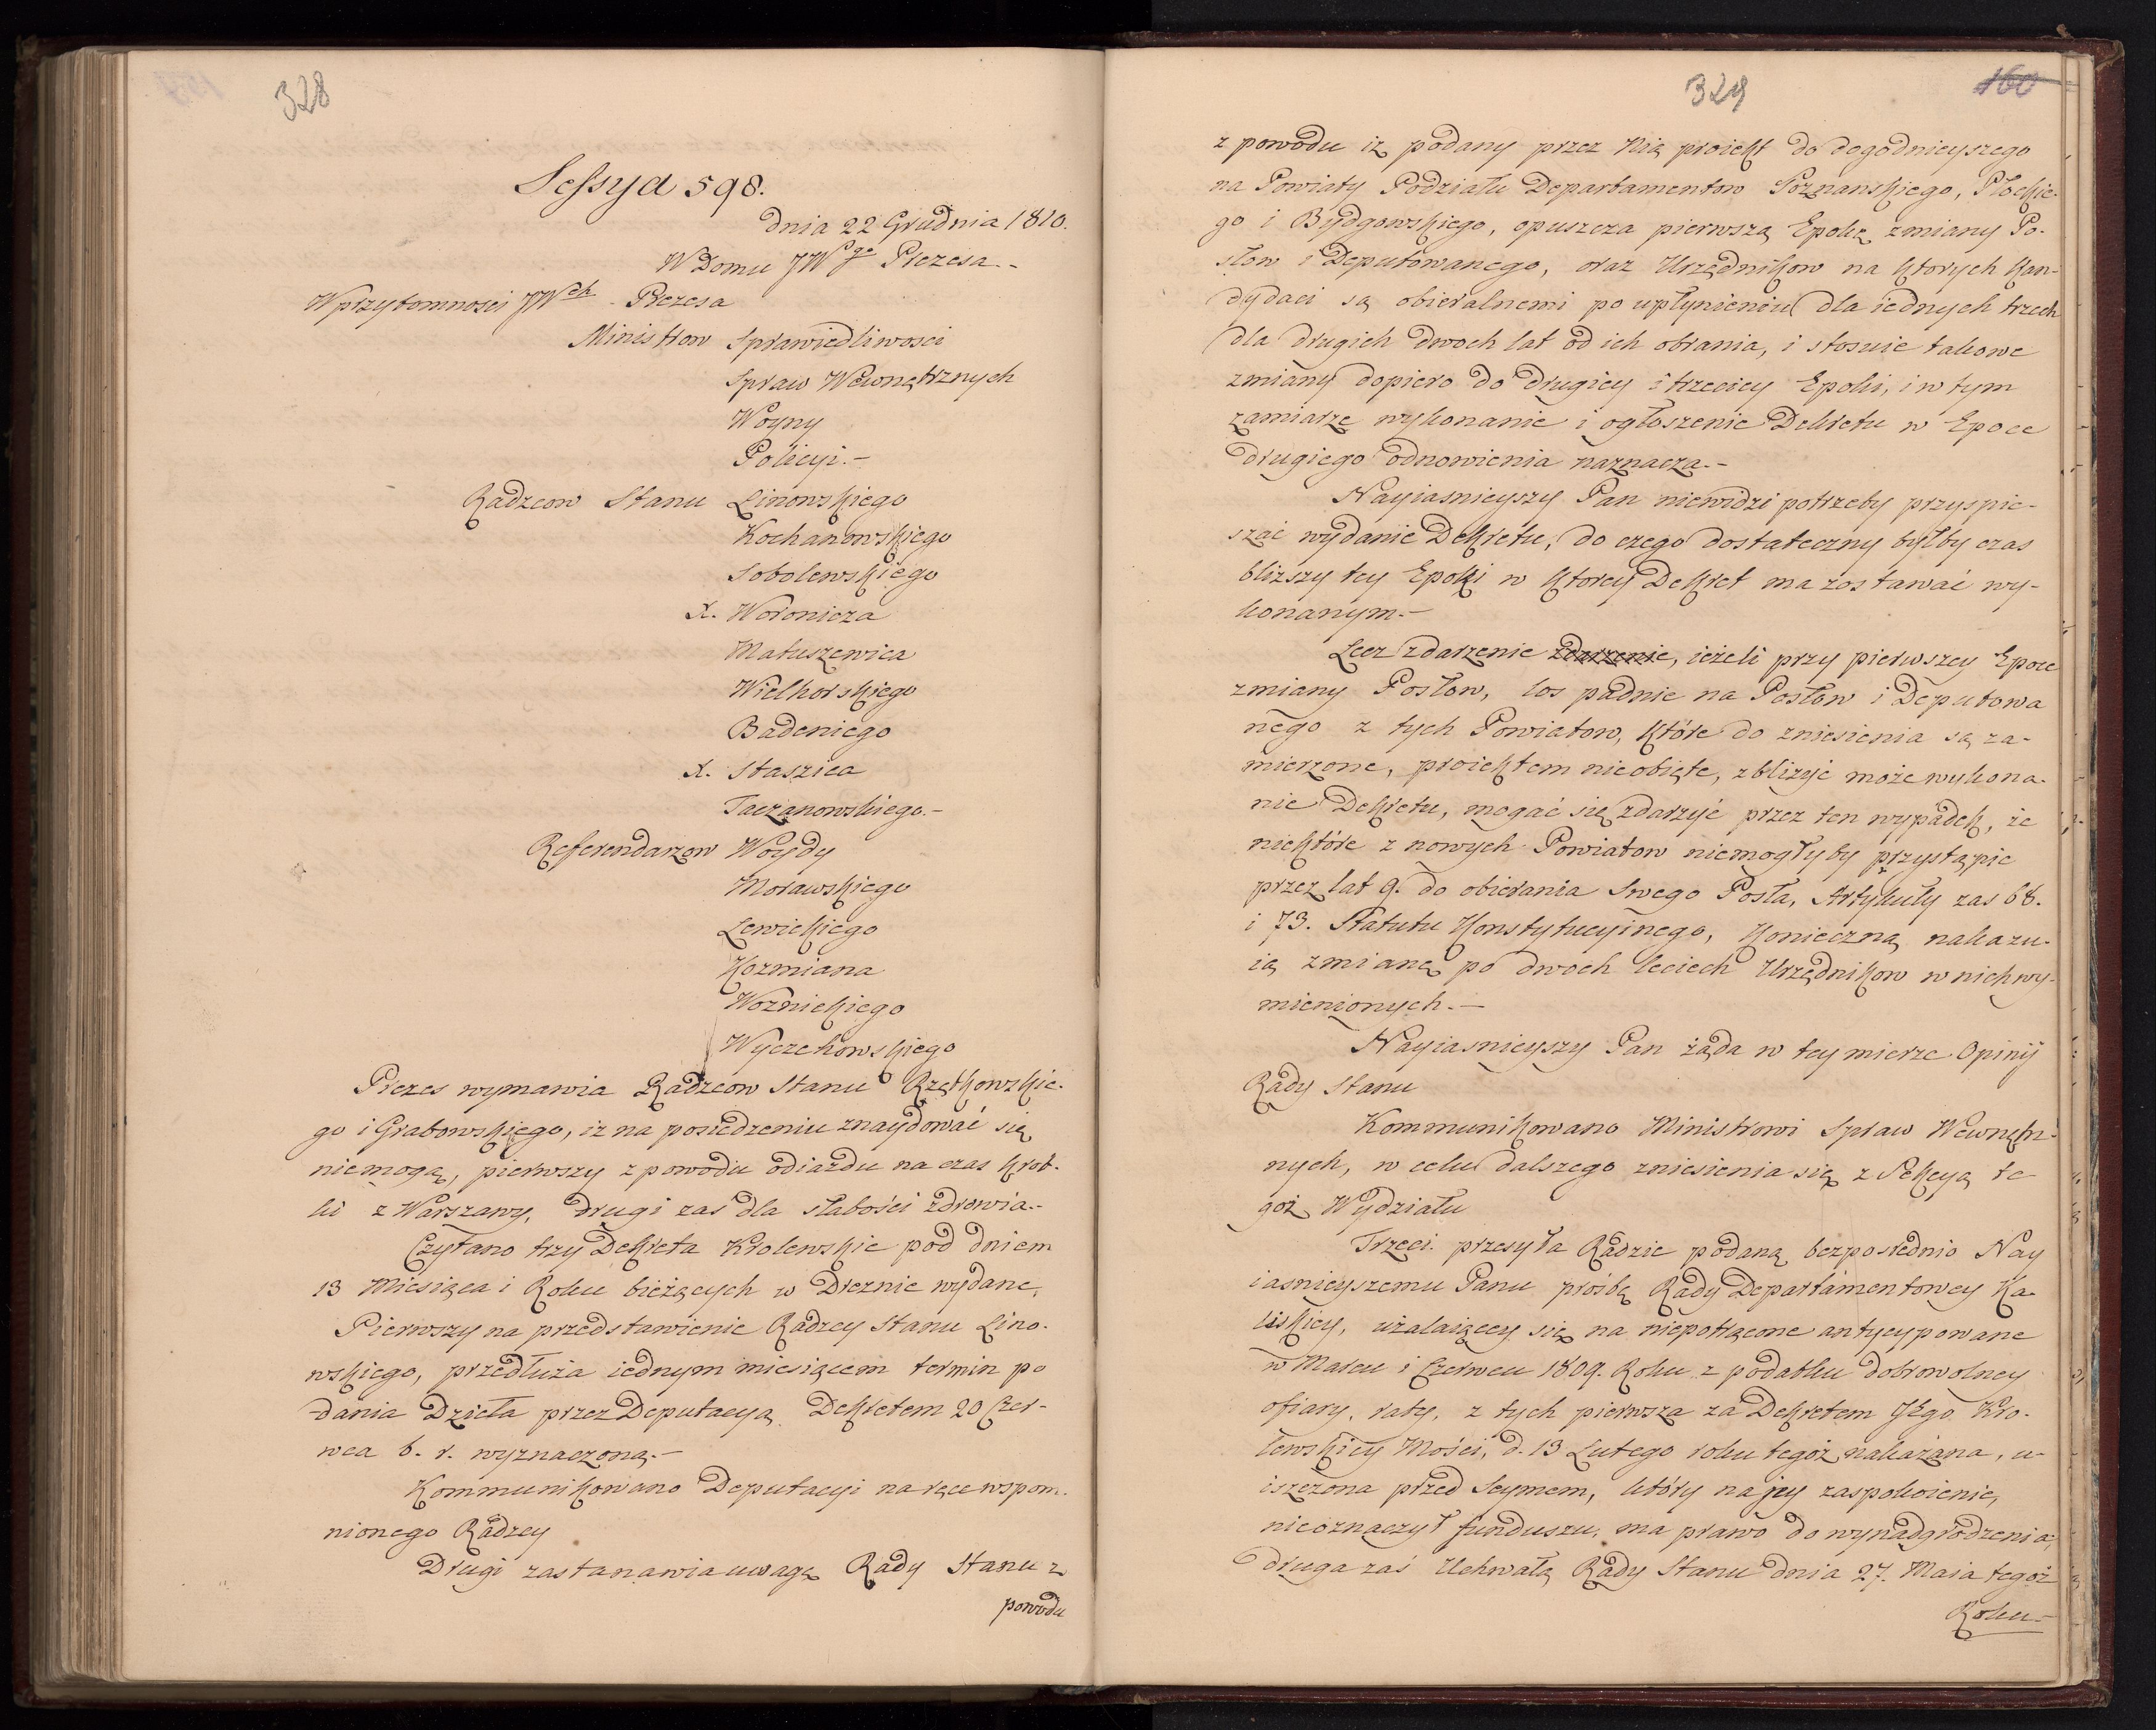 328
Sessya 598.
dnia 22 Grudnia 1810.
W Domu JWgo Prezesa -
W przytomnosci JWch Prezesa
Ministrow Sprawiedliwosci
Spraw Wewnętrznych
Woyny
Policyi. -
Radzcow Stanu Linowskiego
Kochanowskiego
Sobolewskiego
X. Woronicza
Matuszewica
Wielhorskiego
Badeniego
X. Staszica
Taczanowskiego. -
Referendarzow Woydy
Morawskiego
Lewickiego
Kozmiana
Woznickiego
Wyczechowskiego
Prezes wymawia Radzcow Stanu Rzętkowskie-
go i Grabowskiego, iz na posiedzeniu znaydować się
niemogą, pierwszy z powodu odiazdu na czas krot-
ki z Warszawy, drugi zas dla słabości zdrowia. -
Czytano trzy Dekreta Krolewskie pod dniem
13 Miesiąca i Roku bieżących w Dreznie wydane,
Pierwszy na przedstawienie Radzcy Stanu Lino-
wskiego, przedłuża iednym miesiącem termin po
dania Dzieła przez Deputacyą Dekretem 20 Czer-
wca b. r. wyznaczoną. -
Kommunikowano Deputacyi na ręce wspom-
nionego Radzcy
Drugi zastanawia uwagę Rady Stanu z
powodu
329
160
z powodu iż podany przez Nią proiekt do dogodnieyszego
na Powiaty Podziału Departamentow Poznanskiego, Płockie-
go i Bydgowskiego, opuszcza pierwszą Epokę zmiany Po-
słow i Deputowanego, oraz Urzędnikow na ktorych Kan-
dydaci są obieralnemi po upłynieniu dla iednych trzech
dla drugich dwoch lat od ich obrania, i stosuie takowe
zmiany dopiero do drugiey i trzeciey Epoki, i w tym
zamiarze wykonanie i ogłoszenie Dekretu w Epoce
drugiego odnowienia naznacza. -
Nayiasnieyszy Pan niewidzi potrzeby przyspie-
szać wydanie Dekretu, do czego dostateczny byłby czas
bliższy tey Epoki w ktorey Dekret ma zostawać wy-
konanym. -
Lecz zdarzenie zdarzenie, ieżeli przy pierwszey Epoce
zmiany Posłow, los padnie na Posłow i Deputowa
nego z tych Powiatow, które do zniesienia są za-
mierzone, proiektem nieobięte, zbliżyć może wykona-
nie Dekretu, mogąć się zdarzyć przez ten wypadek, że
niektóre z nowych Powiatow niemogłyby przystąpic
przez lat 9. do obierania Swego Posła, Artykuły zas 68.
i 73. Statutu Konstytucyinego, Konieczną nakazu-
ią zmianę po dwoch leciech Urzędnikow w nich wy-
mienionych. -
Nayiasnieyszy Pan żąda w tey mierze Opinij
Rady Stanu
Kommunikowano Ministrowi Spraw Wewnętrz-
nych, w celu dalszego zniesienia się z Sekcyą te
goż Wydziału
Trzeci. przesyła Radzie podaną bezposrednio Nay
iasnieyszemu Panu prośbę Rady Departamentowey Ka-
liskiey, użalaiącey się na niepotrącone antycypowane
w Marcu i Czerwcu 1809. Roku z podatku dobrowolney
ofiary, raty, z tych pierwsza za Dekretem JEgo Kro-
lewskiey Mości, d. 13 Lutego roku tegoż nakazana, u-
iszczona przed Seymem, który na jey zaspokoienie,
nieoznaczył funduszu, ma prawo do wynadgrodzenia,
druga zaś Uchwałą Rady Stanu dnia 27. Maia tegoż
Roku -